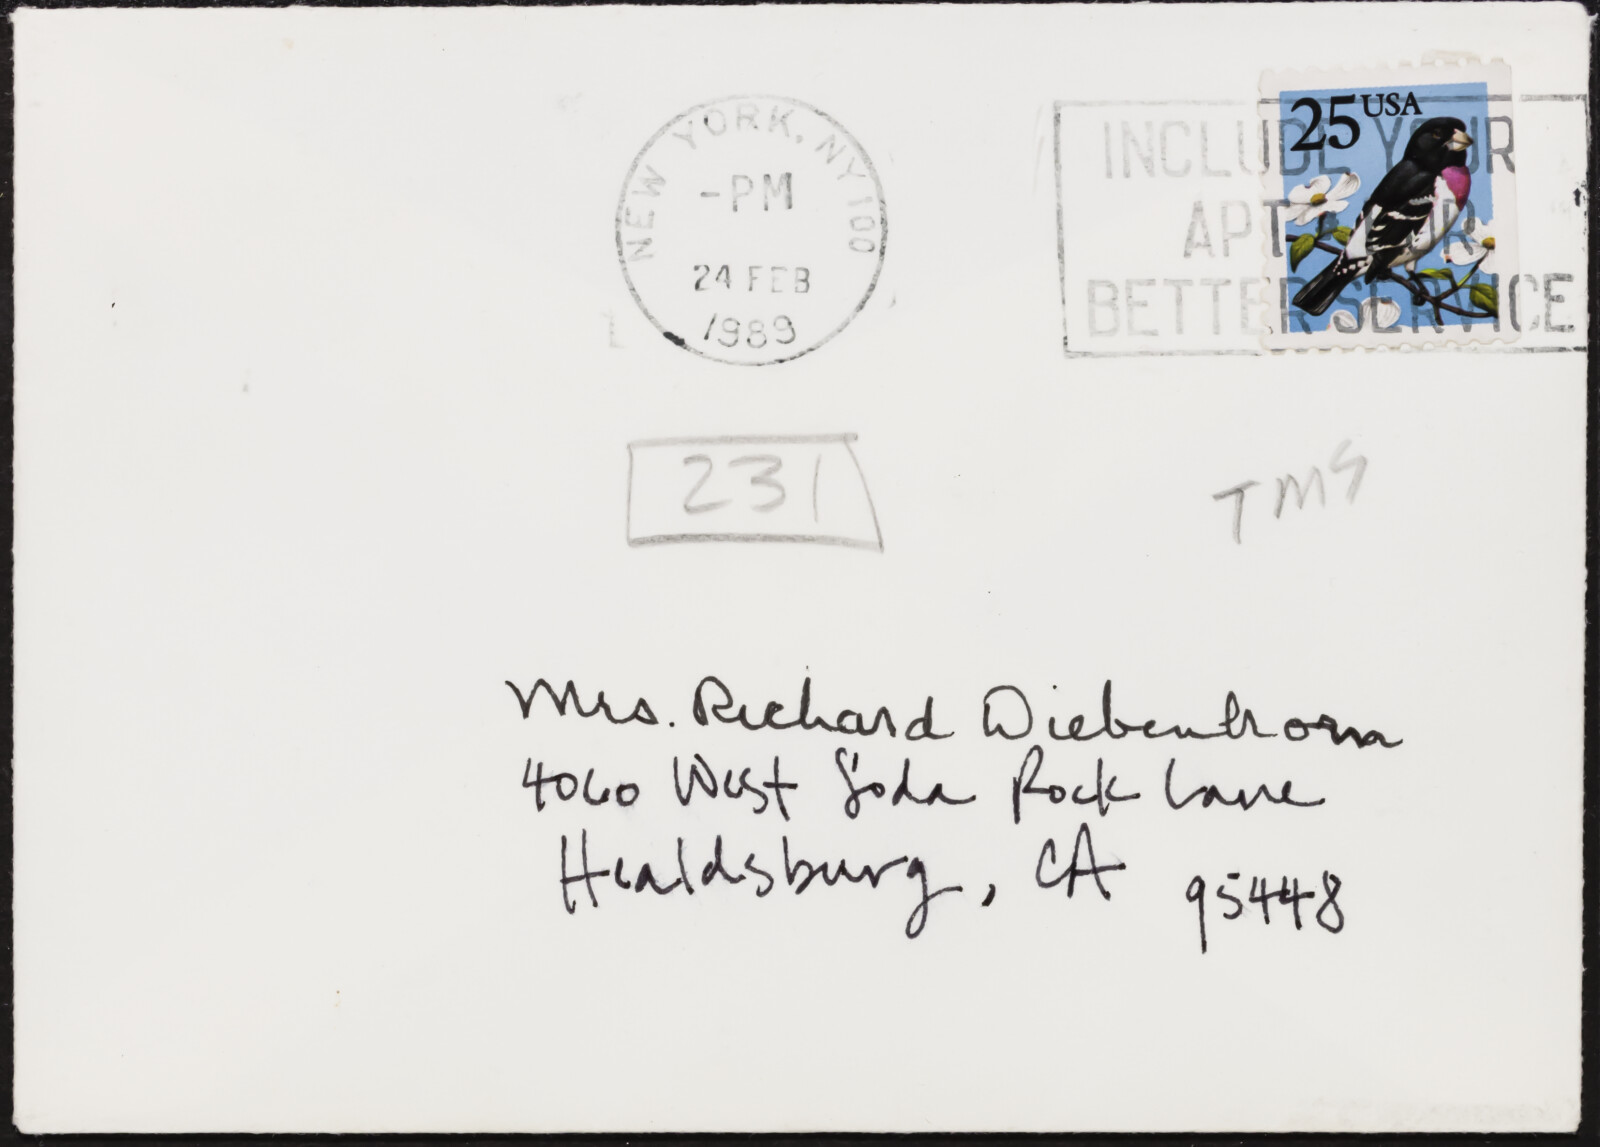 NEW YORK, NY 100
-PM
24 FEB
1989
25 USA
INCLUDE YOUR
APT # FOR
BETTER SERVICE
231
TMS
Mrs. Richard Diebenkorn
4060 West Soda Rock Lane
Healdsburg, CA 95448